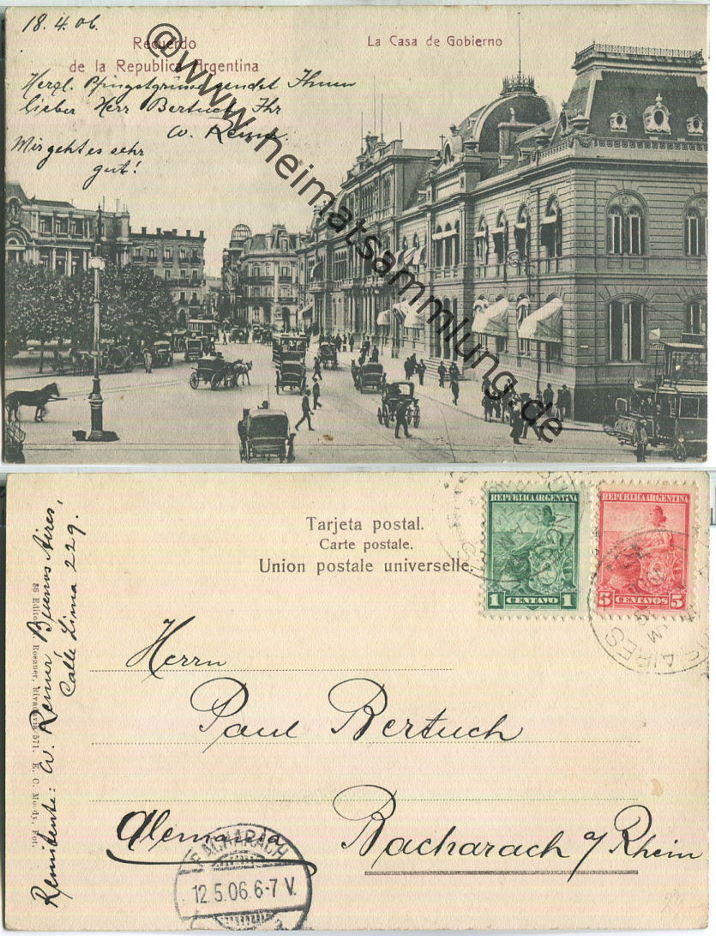 18.4.06.
Recuerdo
de la Republica Argentina
La Casa de Gobierno
Herzl. Pfingstgrüsse sendet Ihnen
lieber Herr Bertuch Ihr
W. Remé.
Mir geht es sehr
gut!
@www.heimatsammlung.de
Tarjeta postal.
Carte postale.
Union postale universelle.
REPUBLICA ARGENTINA
1 CENTAVO 1
REPUBLICA ARGENTINA
5 CENTAVOS 5
AIRES
Herrn
Paul Bertuch
Alemania
Bacharach a/Rhein
BACHARACH
12.5.06.6-7 V.
Remidente: W. Remé, Buenos Aires,
Calle Lima 229.
86 Editor R. Rosauer, Rivadavia 571.